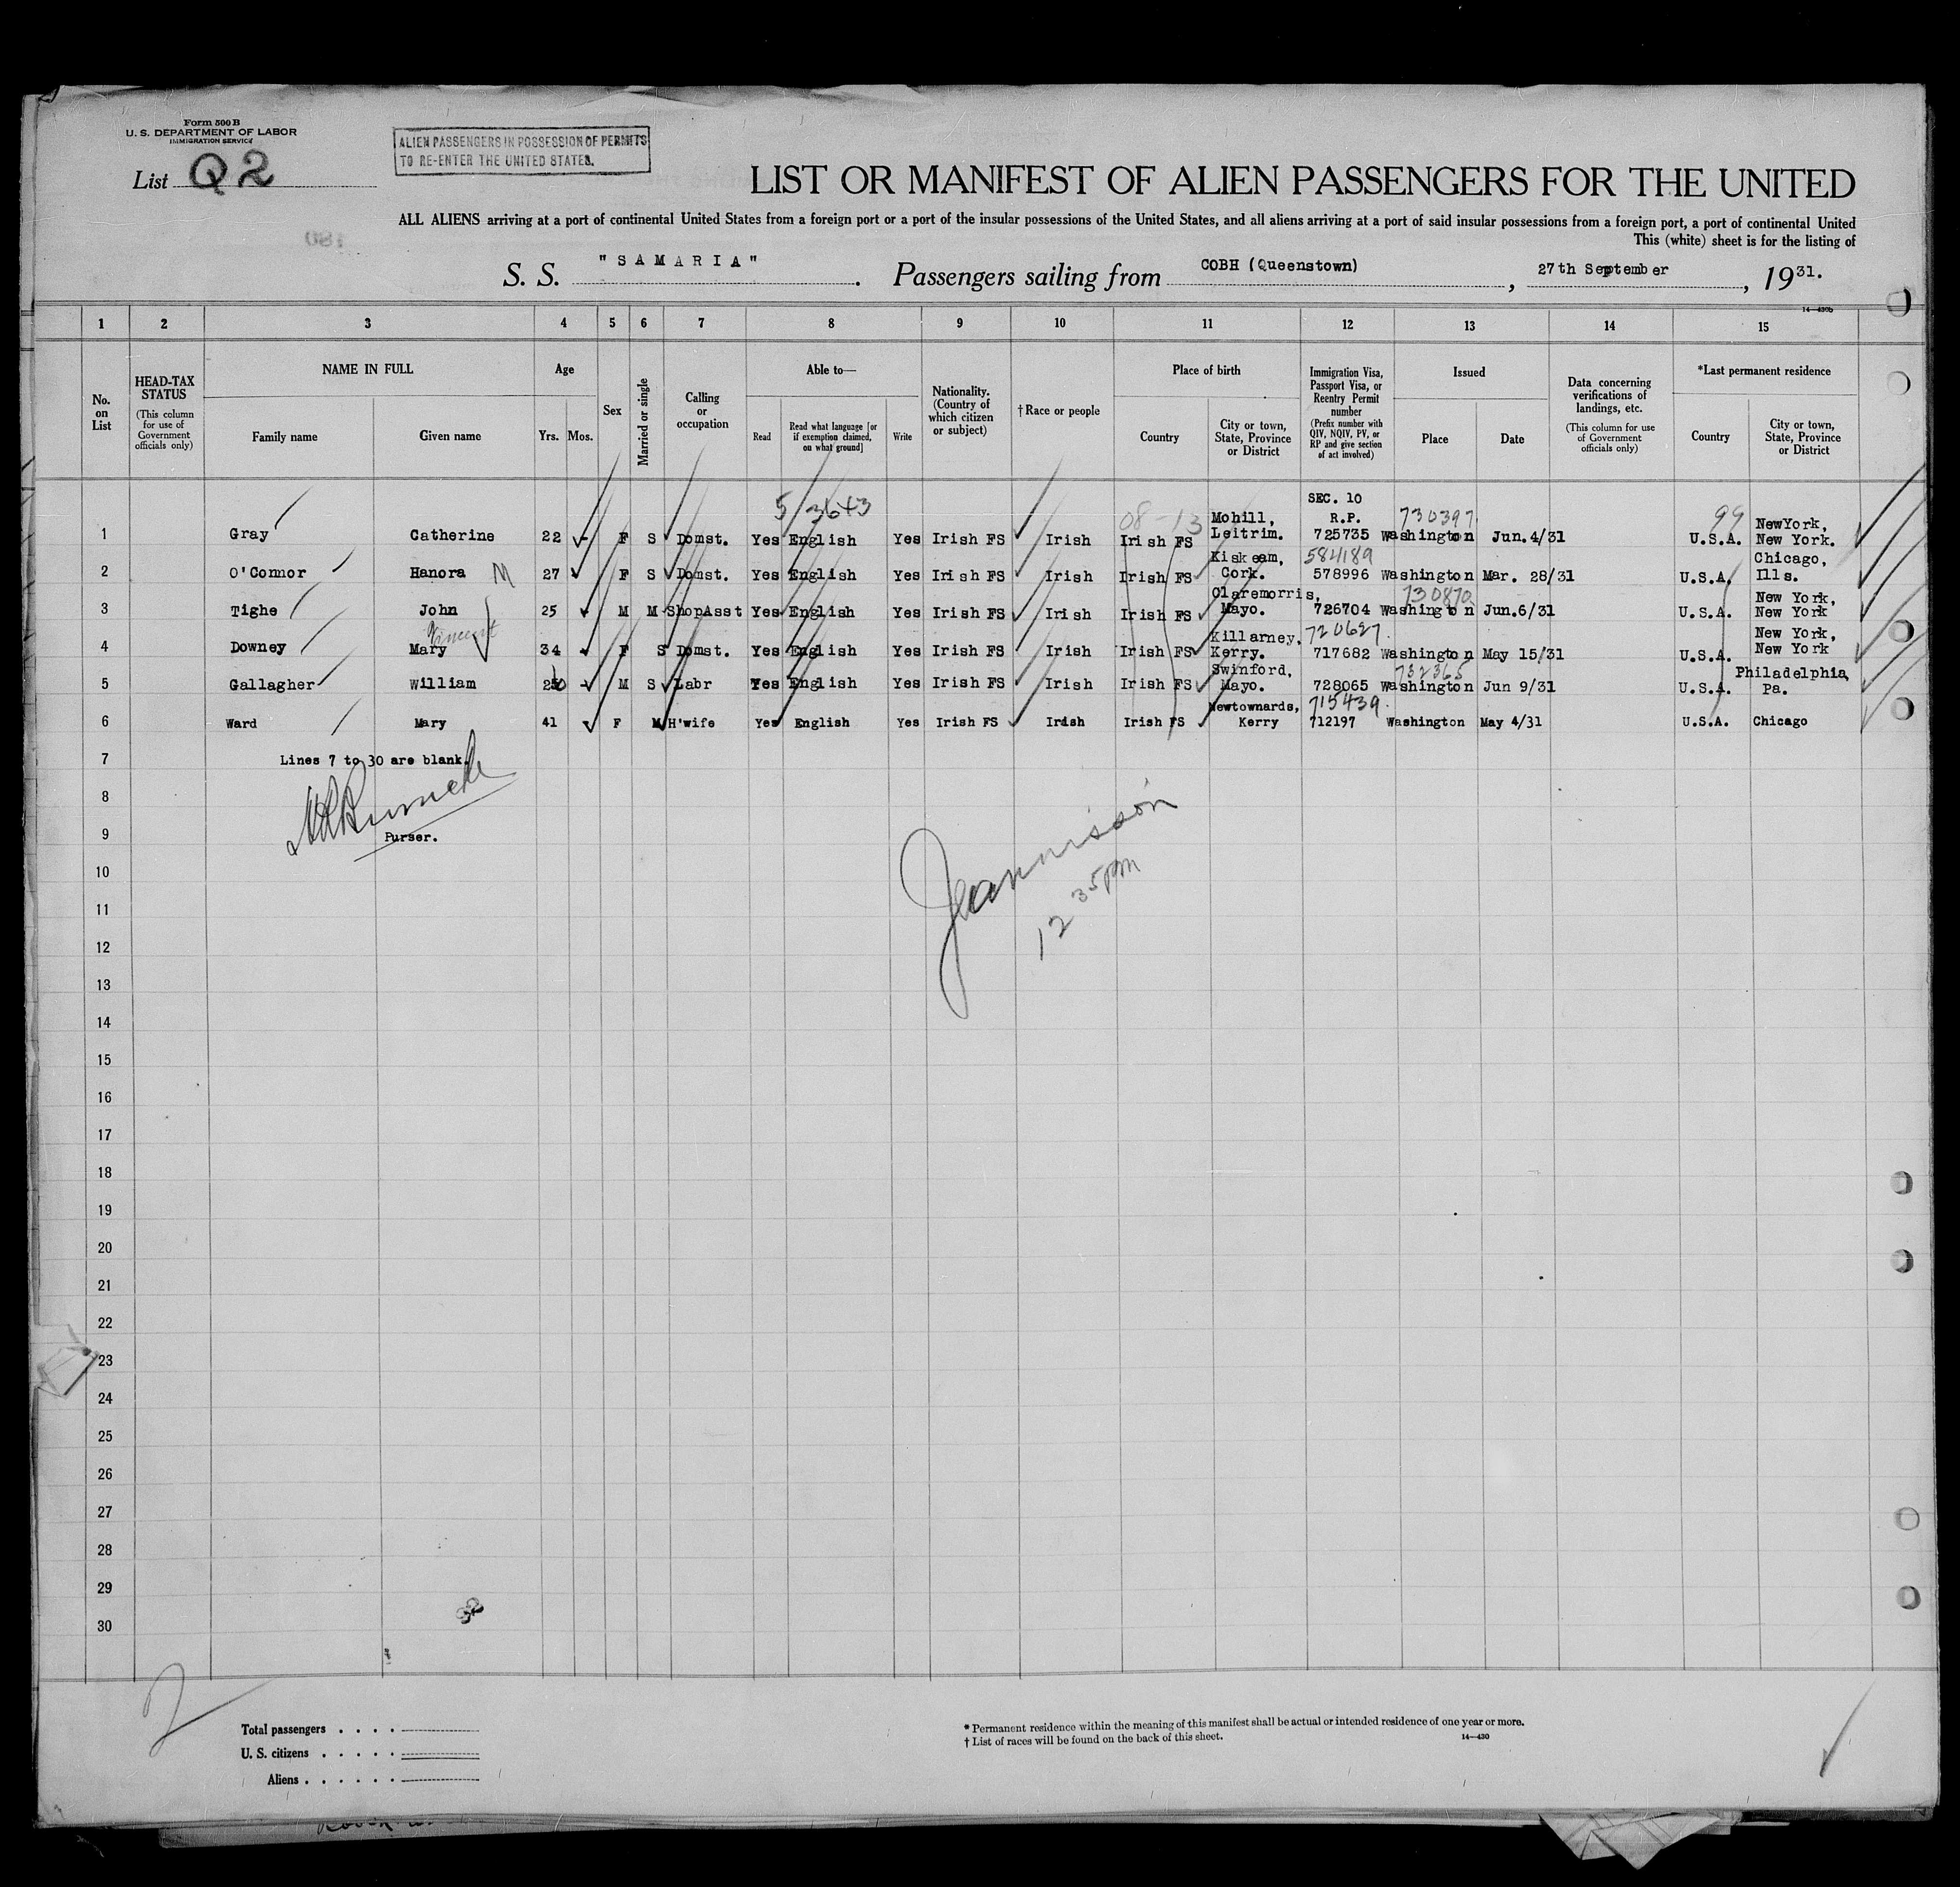 Form 500 B
U. S. DEPARTMENT OF LABOR
IMMIGRATION SERVICE
ALIEN PASSENGERS IN POSSESSION OF PERMITS
TO RE-ENTER THE UNITED STATES.
List Q2
LIST OR MANIFEST OF ALIEN PASSENGERS FOR THE UNITED
ALL ALIENS arriving at a port of continental United States from a foreign port or a port of the insular possessions of the United States, and all aliens arriving at a port of said insular possessions from a foreign port, a port of continental United
This (white) sheet is for the listing of
S. S. "SAMARIA". Passengers sailing from COBH (Queenstown), 27th September, 1931.
14—430b
1 2 3 4 5 6 7 8 9 10 11 12 13 14 15
No. on List
HEAD-TAX STATUS (This column for use of Government officials only)
NAME IN FULL
Family name
Given name
Age
Yrs. Mos.
Sex
Married or single
Calling or occupation
Able to—
Read
Read what language [or if exemption claimed, on what ground]
Write
Nationality. (Country of which citizen or subject)
†Race or people
Place of birth
Country
City or town, State, Province or District
Immigration Visa, Passport Visa, or Reentry Permit number (Prefix number with QIV, NQIV, PV, or RP and give section of act involved)
Issued
Place
Date
Data concerning verifications of landings, etc. (This column for use of Government officials only)
*Last permanent residence
Country
City or town, State, Province or District
5/3643
SEC. 10
08-13 Mohill, R.P. 730397 99 NewYork,
1 Gray Catherine 22 - F S Domst. Yes English Yes Irish FS Irish Irish FS Leitrim. 725735 Washington Jun.4/31 U.S.A. New York.
Kiskeam, 584189 Chicago,
2 O'Connor Hanora M 27 F S Domst. Yes English Yes Irish FS Irish Irish FS Cork. 578996 Washington Mar. 28/31 U.S.A. Ills.
Claremorris, 730870 New York,
3 Tighe John 25 - M M ShopAsst Yes English Yes Irish FS Irish Irish FS Mayo. 726704 Washington Jun.6/31 U.S.A. New York
Vincent Killarney, 720627. New York,
4 Downey Mary 34 - F S Domst. Yes English Yes Irish FS Irish Irish FS Kerry. 717682 Washington May 15/31 U.S.A. New York
Swinford, 732365 Philadelphia,
5 Gallagher William 26 - M S Labr Yes English Yes Irish FS Irish Irish FS Mayo. 728065 Washington Jun 9/31 U.S.A. Pa.
Newtownards, 715439.
6 Ward Mary 41 F M H'wife Yes English Yes Irish FS Irish Irish FS Kerry 712197 Washington May 4/31 U.S.A. Chicago
7 Lines 7 to 30 are blank.
8
9 Purser.
10
11
12 35pm
12
13
14
15
16
17
18
19
20
21
22
23
24
25
26
27
28
29
30
2
Total passengers . . . .
U. S. citizens . . . . .
Aliens . . . . . .
* Permanent residence within the meaning of this manifest shall be actual or intended residence of one year or more.
† List of races will be found on the back of this sheet.
14—430